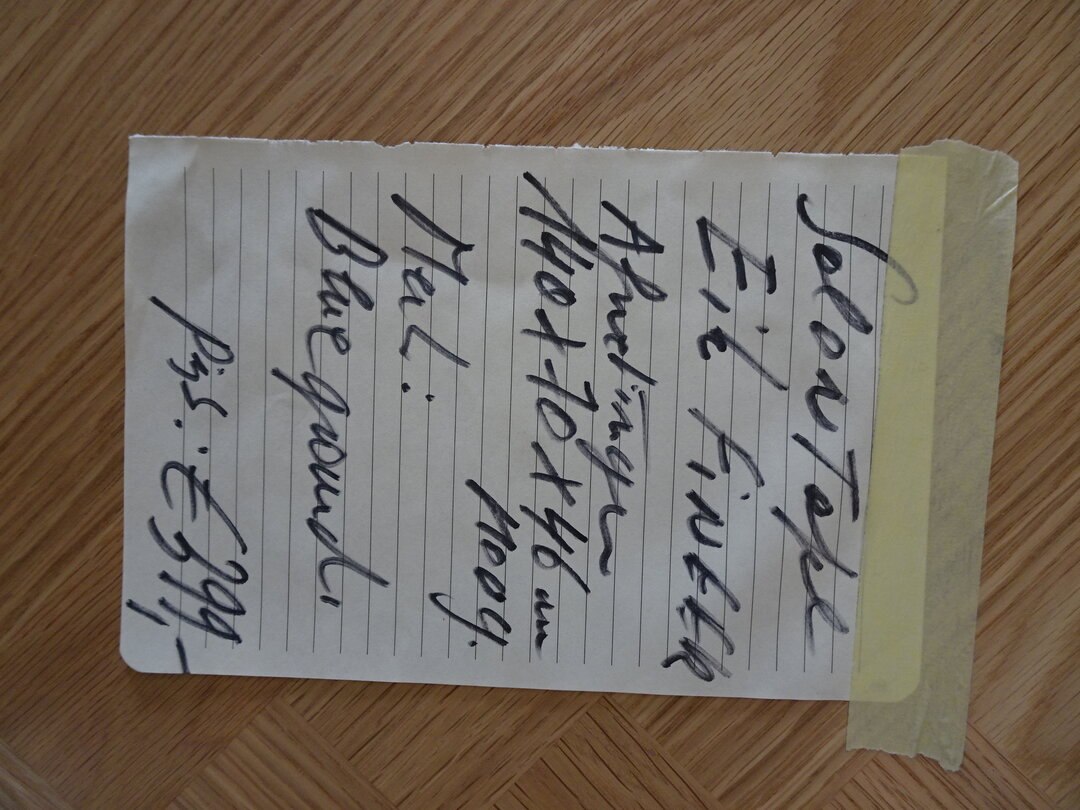 Salon Tafel
Eik Fineer
Afmetingen
140 x 70 x 46 cm
Mat: 1100 g.
Blue ground,
Pijs: € 399,-